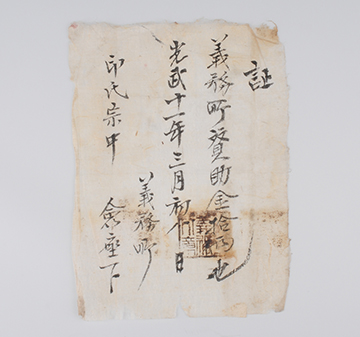 証
義務所資助金拾両也
光武十一年三月初八日
義務所
印氏宗中 座下